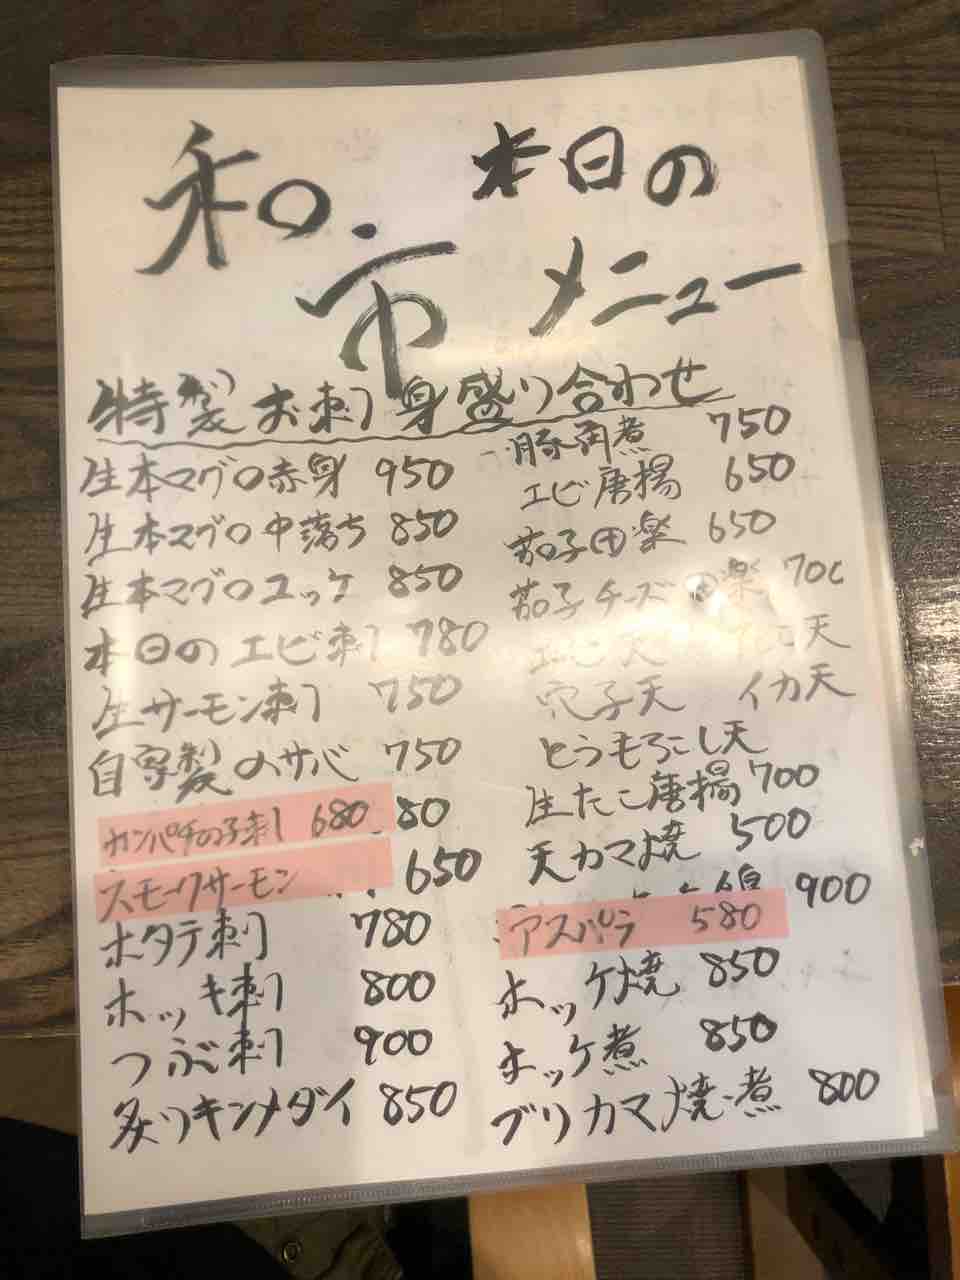 和市
本日の
メニュー
特製お刺身盛り合わせ
生本マグロ赤身 950
生本マグロ中落ち 850
生本マグロユッケ 850
本日のエビ刺 780
生サーモン刺 750
自家製〆サバ 750
カンパチの子刺し 680 80
スモークサーモン 650
ホタテ刺 780
ホッキ刺 800
つぶ刺 900
炙りキンメダイ 850
豚角煮 750
エビ唐揚 650
茄子田楽 650
茄子チーズ田楽 700
エビ天 たこ天
穴子天 イカ天
とうもろこし天
生たこ唐揚 700
天カマ焼 500
900
アスパラ 580
ホッケ焼 850
ホッケ煮 850
ブリカマ焼・煮 800